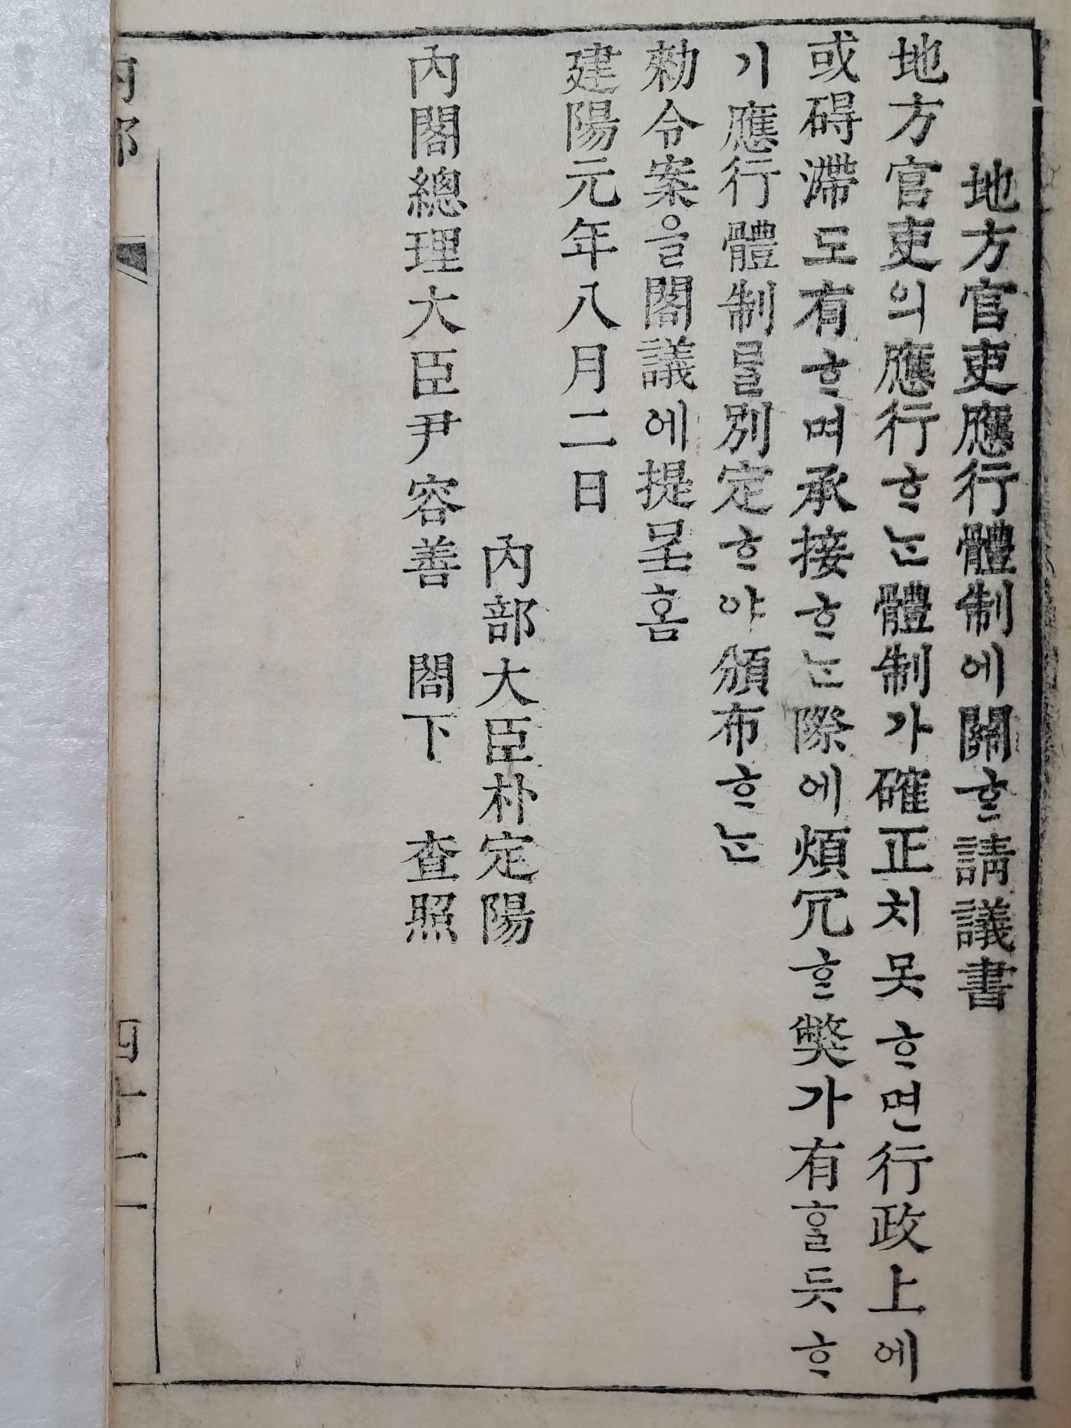 地方官吏應行體制에關ᄒᆞᆫ請議書
地方官吏의應行ᄒᆞᄂᆞᆫ體制가確正치못ᄒᆞ면行政上에
或碍滯도有ᄒᆞ며承接ᄒᆞᄂᆞᆫ際에煩冗ᄒᆞᆫ獘가有ᄒᆞᆯ듯ᄒᆞ
기應行體制ᄅᆞᆯ別定ᄒᆞ야頒布ᄒᆞᄂᆞᆫ
勅令案을閣議에提呈홈
建陽元年八月二日
內部大臣朴定陽
內閣總理大臣尹容善 閤下 查照
內部
四十一